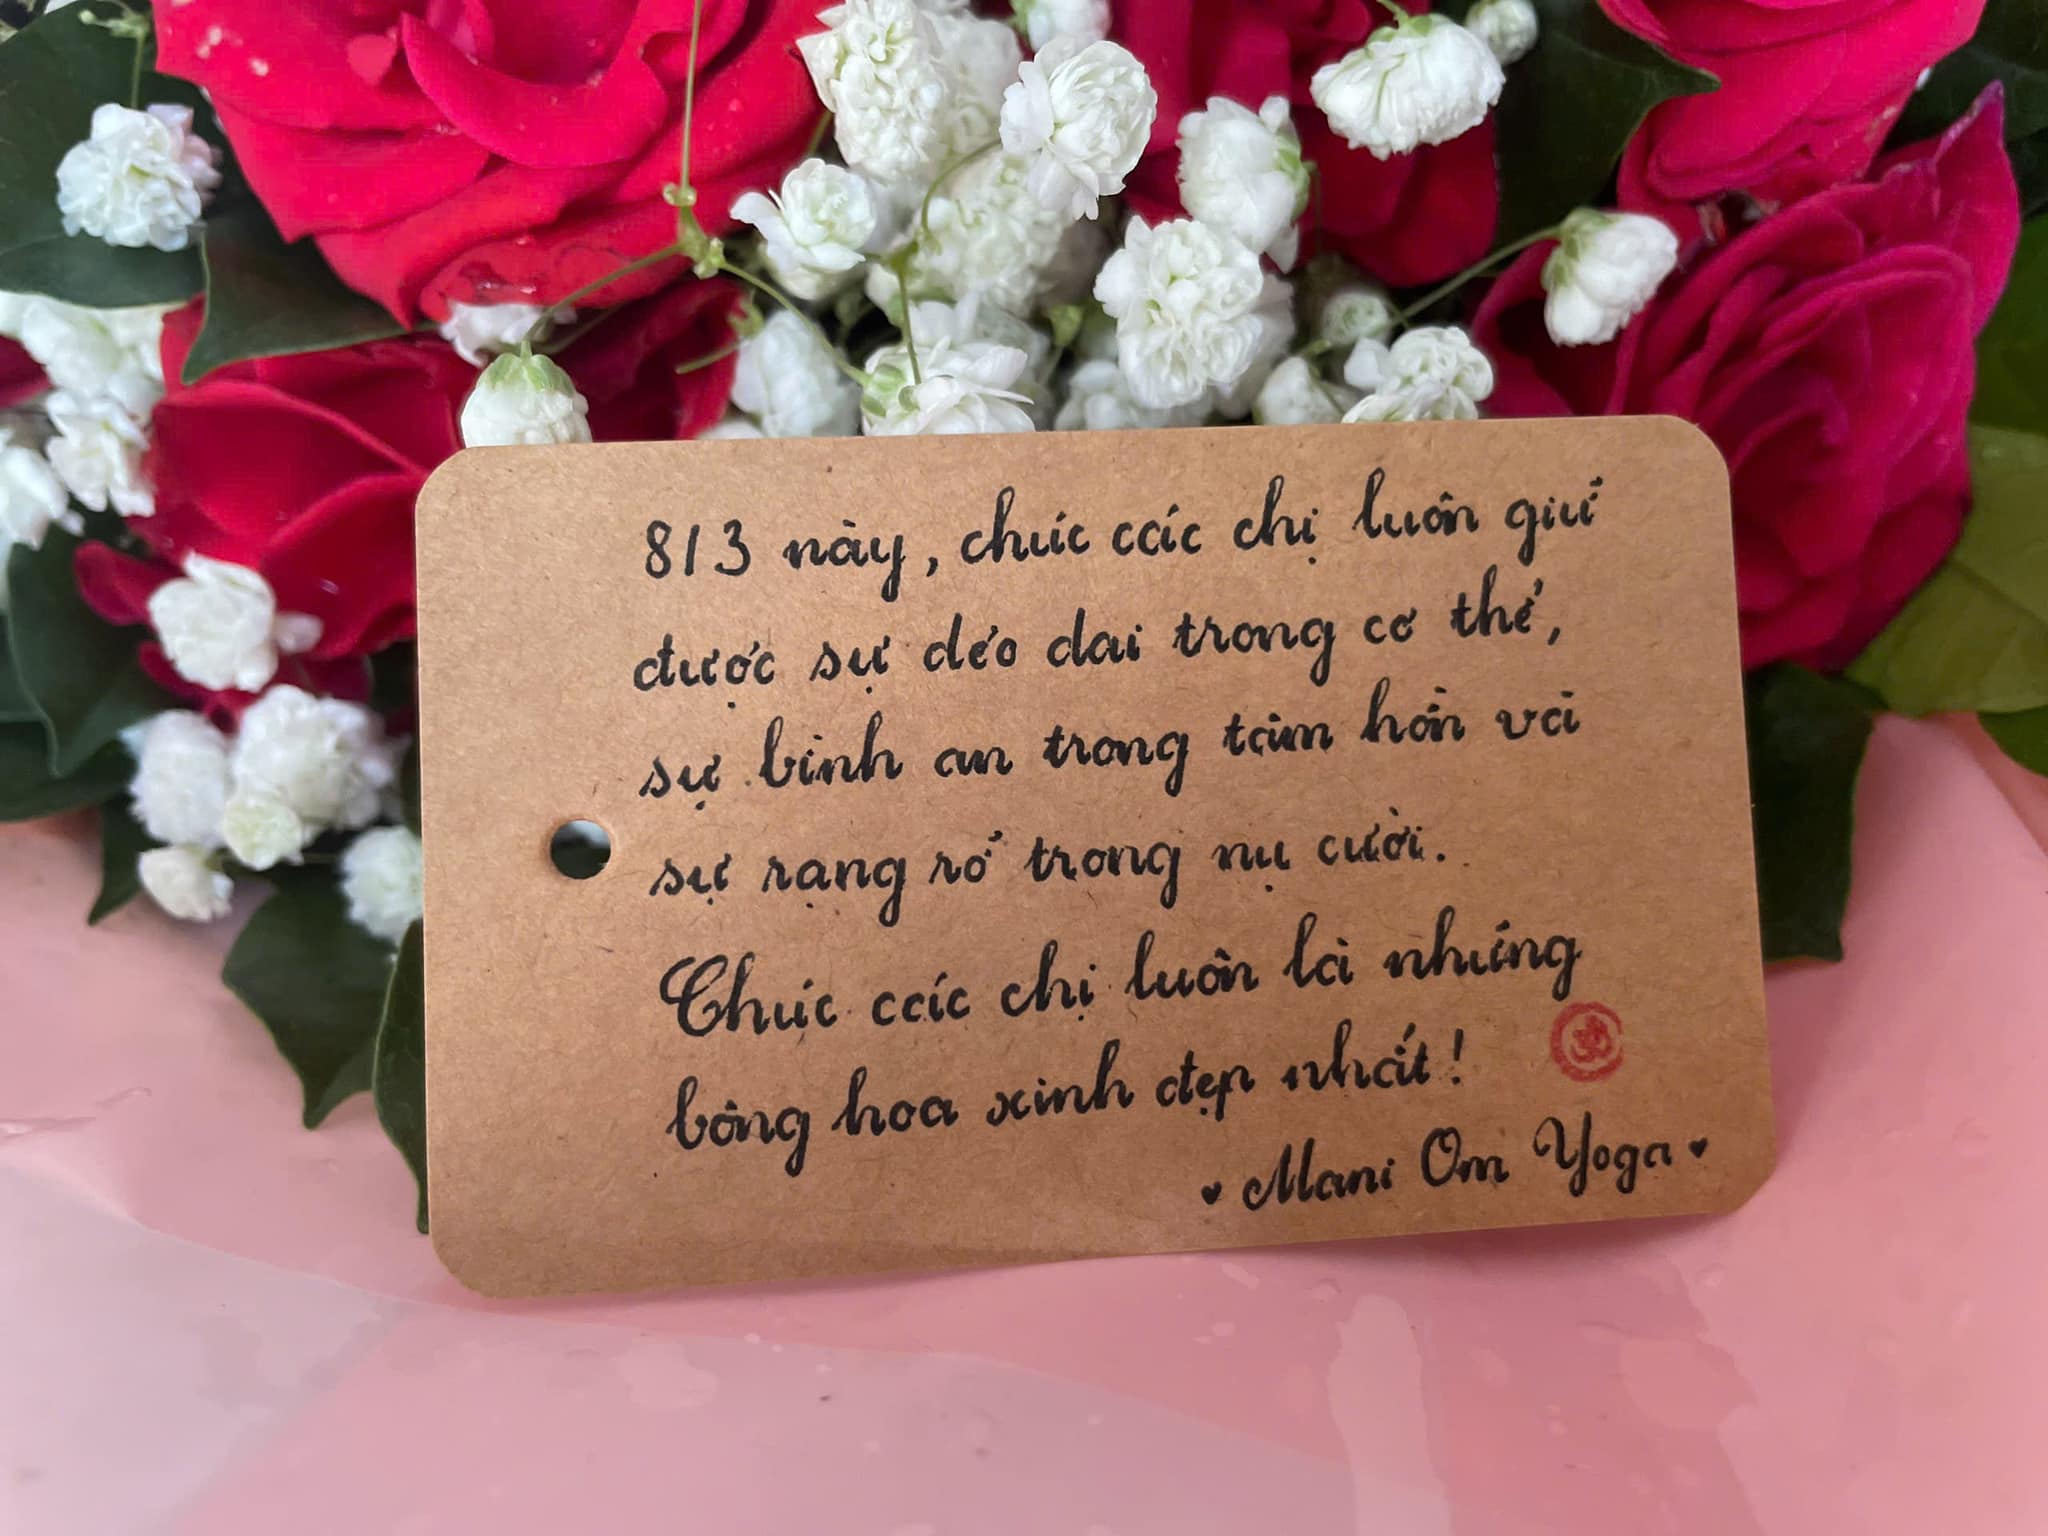 8/3 này, chúc các chị luôn giữ
được sự dẻo dai trong cơ thể,
sự bình an trong tâm hồn và
sự rạng rỡ trong nụ cười.
Chúc các chị luôn là những
bông hoa xinh đẹp nhất!
Mani Om Yoga